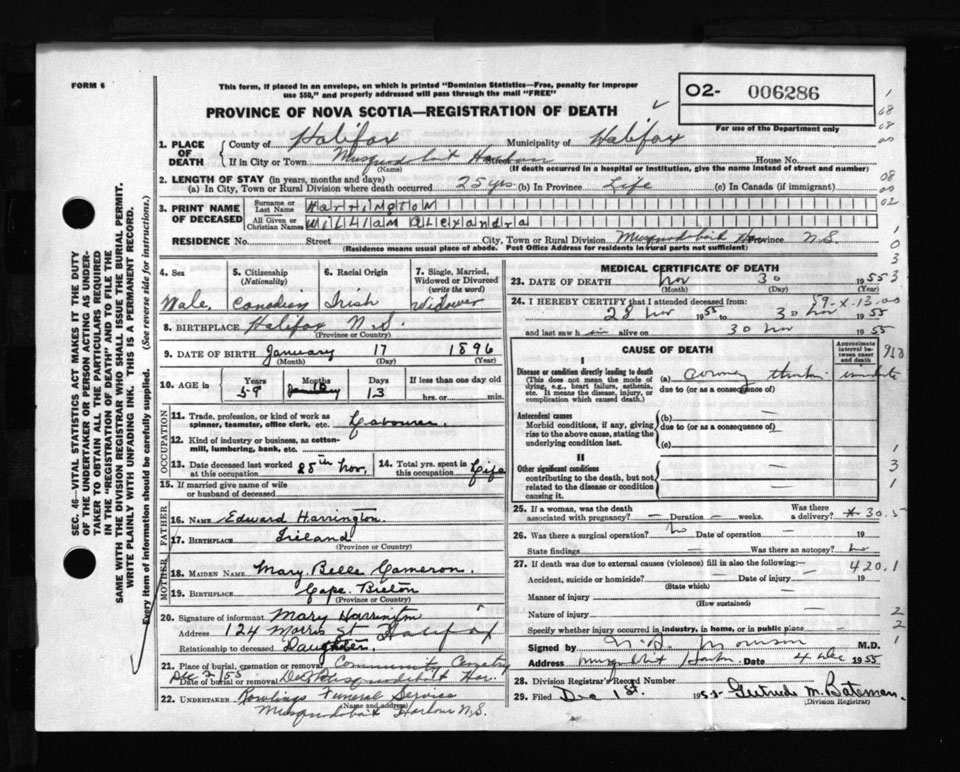 FORM 6
This form, if placed in an envelope, on which is printed "Dominion Statistics—Free, penalty for improper
use $50," and properly addressed will pass through the mail "FREE"
02- 006286
For use of the Department only
PROVINCE OF NOVA SCOTIA—REGISTRATION OF DEATH
SEC. 46—VITAL STATISTICS ACT MAKES IT THE DUTY
OF THE UNDERTAKER OR PERSON ACTING AS UNDER-
TAKER TO OBTAIN ALL THE PARTICULARS REQUIRED
IN THE "REGISTRATION OF DEATH" AND TO FILE THE
SAME WITH THE DIVISION REGISTRAR WHO SHALL ISSUE THE BURIAL PERMIT.
WRITE PLAINLY WITH UNFADING INK. THIS IS A PERMANENT RECORD.
Every item of information should be carefully supplied. (See reverse side for instructions.)
1. PLACE OF DEATH
County of Halifax Municipality of Halifax
If in City or Town Musquodoboit Harbour House No.
(Name) (If death occurred in a hospital or institution, give the name instead of street and number)
2. LENGTH OF STAY (in years, months and days)
(a) In City, Town or Rural Division where death occurred 25 yrs. (b) In Province Life (c) In Canada (if immigrant)
3. PRINT NAME OF DECEASED
Surname or Last Name Harrington
All Given or Christian Names William Alexandra
RESIDENCE No. Street City, Town or Rural Division Musquodoboit Har Province N.S.
(Residence means usual place of abode. Post Office Address for residents in rural parts not sufficient)
4. Sex Male
5. Citizenship (Nationality) Canadian
6. Racial Origin Irish
7. Single, Married, Widowed or Divorced (write the word) Widower
8. BIRTHPLACE Halifax N.S.
(Province or Country)
9. DATE OF BIRTH January 17 1896
(Month) (Day) (Year)
10. AGE in Years Months Days If less than one day old
59 13 hrs. or min.
OCCUPATION
11. Trade, profession, or kind of work as
spinner, teamster, office clerk, etc. Labourer
12. Kind of industry or business, as cotton-
mill, lumbering, bank, etc.
13. Date deceased last worked at this occupation 25th Nov,
14. Total yrs. spent in this occupation Life
15. If married give name of wife
or husband of deceased
FATHER
16. NAME Edward Harrington
17. BIRTHPLACE Ireland
(Province or Country)
MOTHER
18. MAIDEN NAME Mary Belle Cameron
19. BIRTHPLACE Cape Breton
(Province or Country)
20. Signature of informant Mary Harrington
Address 124 Morris St Halifax
Relationship to deceased Daughter
21. Place of burial, cremation or removal Community Cemetry
Date of burial or removal Dec 2/55 Musquodoboit Har.
22. UNDERTAKER Rowlings Funeral Service
(Name and address)
Musquodoboit Harbour N.S.
MEDICAL CERTIFICATE OF DEATH
23. DATE OF DEATH Nov 30 1955
(Month) (Day) (Year)
24. I HEREBY CERTIFY that I attended deceased from:
28 Nov 1955 to 30 Nov 1955
and last saw him alive on 30 Nov 1955
CAUSE OF DEATH
Approximate interval between onset and death
I
Disease or condition directly leading to death
(This does not mean the mode of
dying, e.g., heart failure, asthenia,
etc. It means the disease, injury, or
complication which caused death.)
(a)
due to (or as a consequence of)
Antecedent causes
Morbid conditions, if any, giving
rise to the above cause, stating the
underlying condition last.
(b)
due to (or as a consequence of)
(c)
II
Other significant conditions
contributing to the death, but not
related to the disease or condition
causing it.
25. If a woman, was the death
associated with pregnancy? — Duration — weeks. Was there a delivery?
26. Was there a surgical operation? No Date of operation — 19
State findings — Was there an autopsy? No
27. If death was due to external causes (violence) fill in also the following:—
420.1
Accident, suicide or homicide? — Date of injury — 19
(State which)
Manner of injury —
(How sustained)
Nature of injury —
Specify whether injury occurred in industry, in home, or in public place
Signed by M.D.
Address Musquodoboit Harbour Date 4 Dec 1955
28. Division Registrar's Record No.
29. Filed Dec 1st. 1955 Gertrude M. Bateman
(Division Registrar)